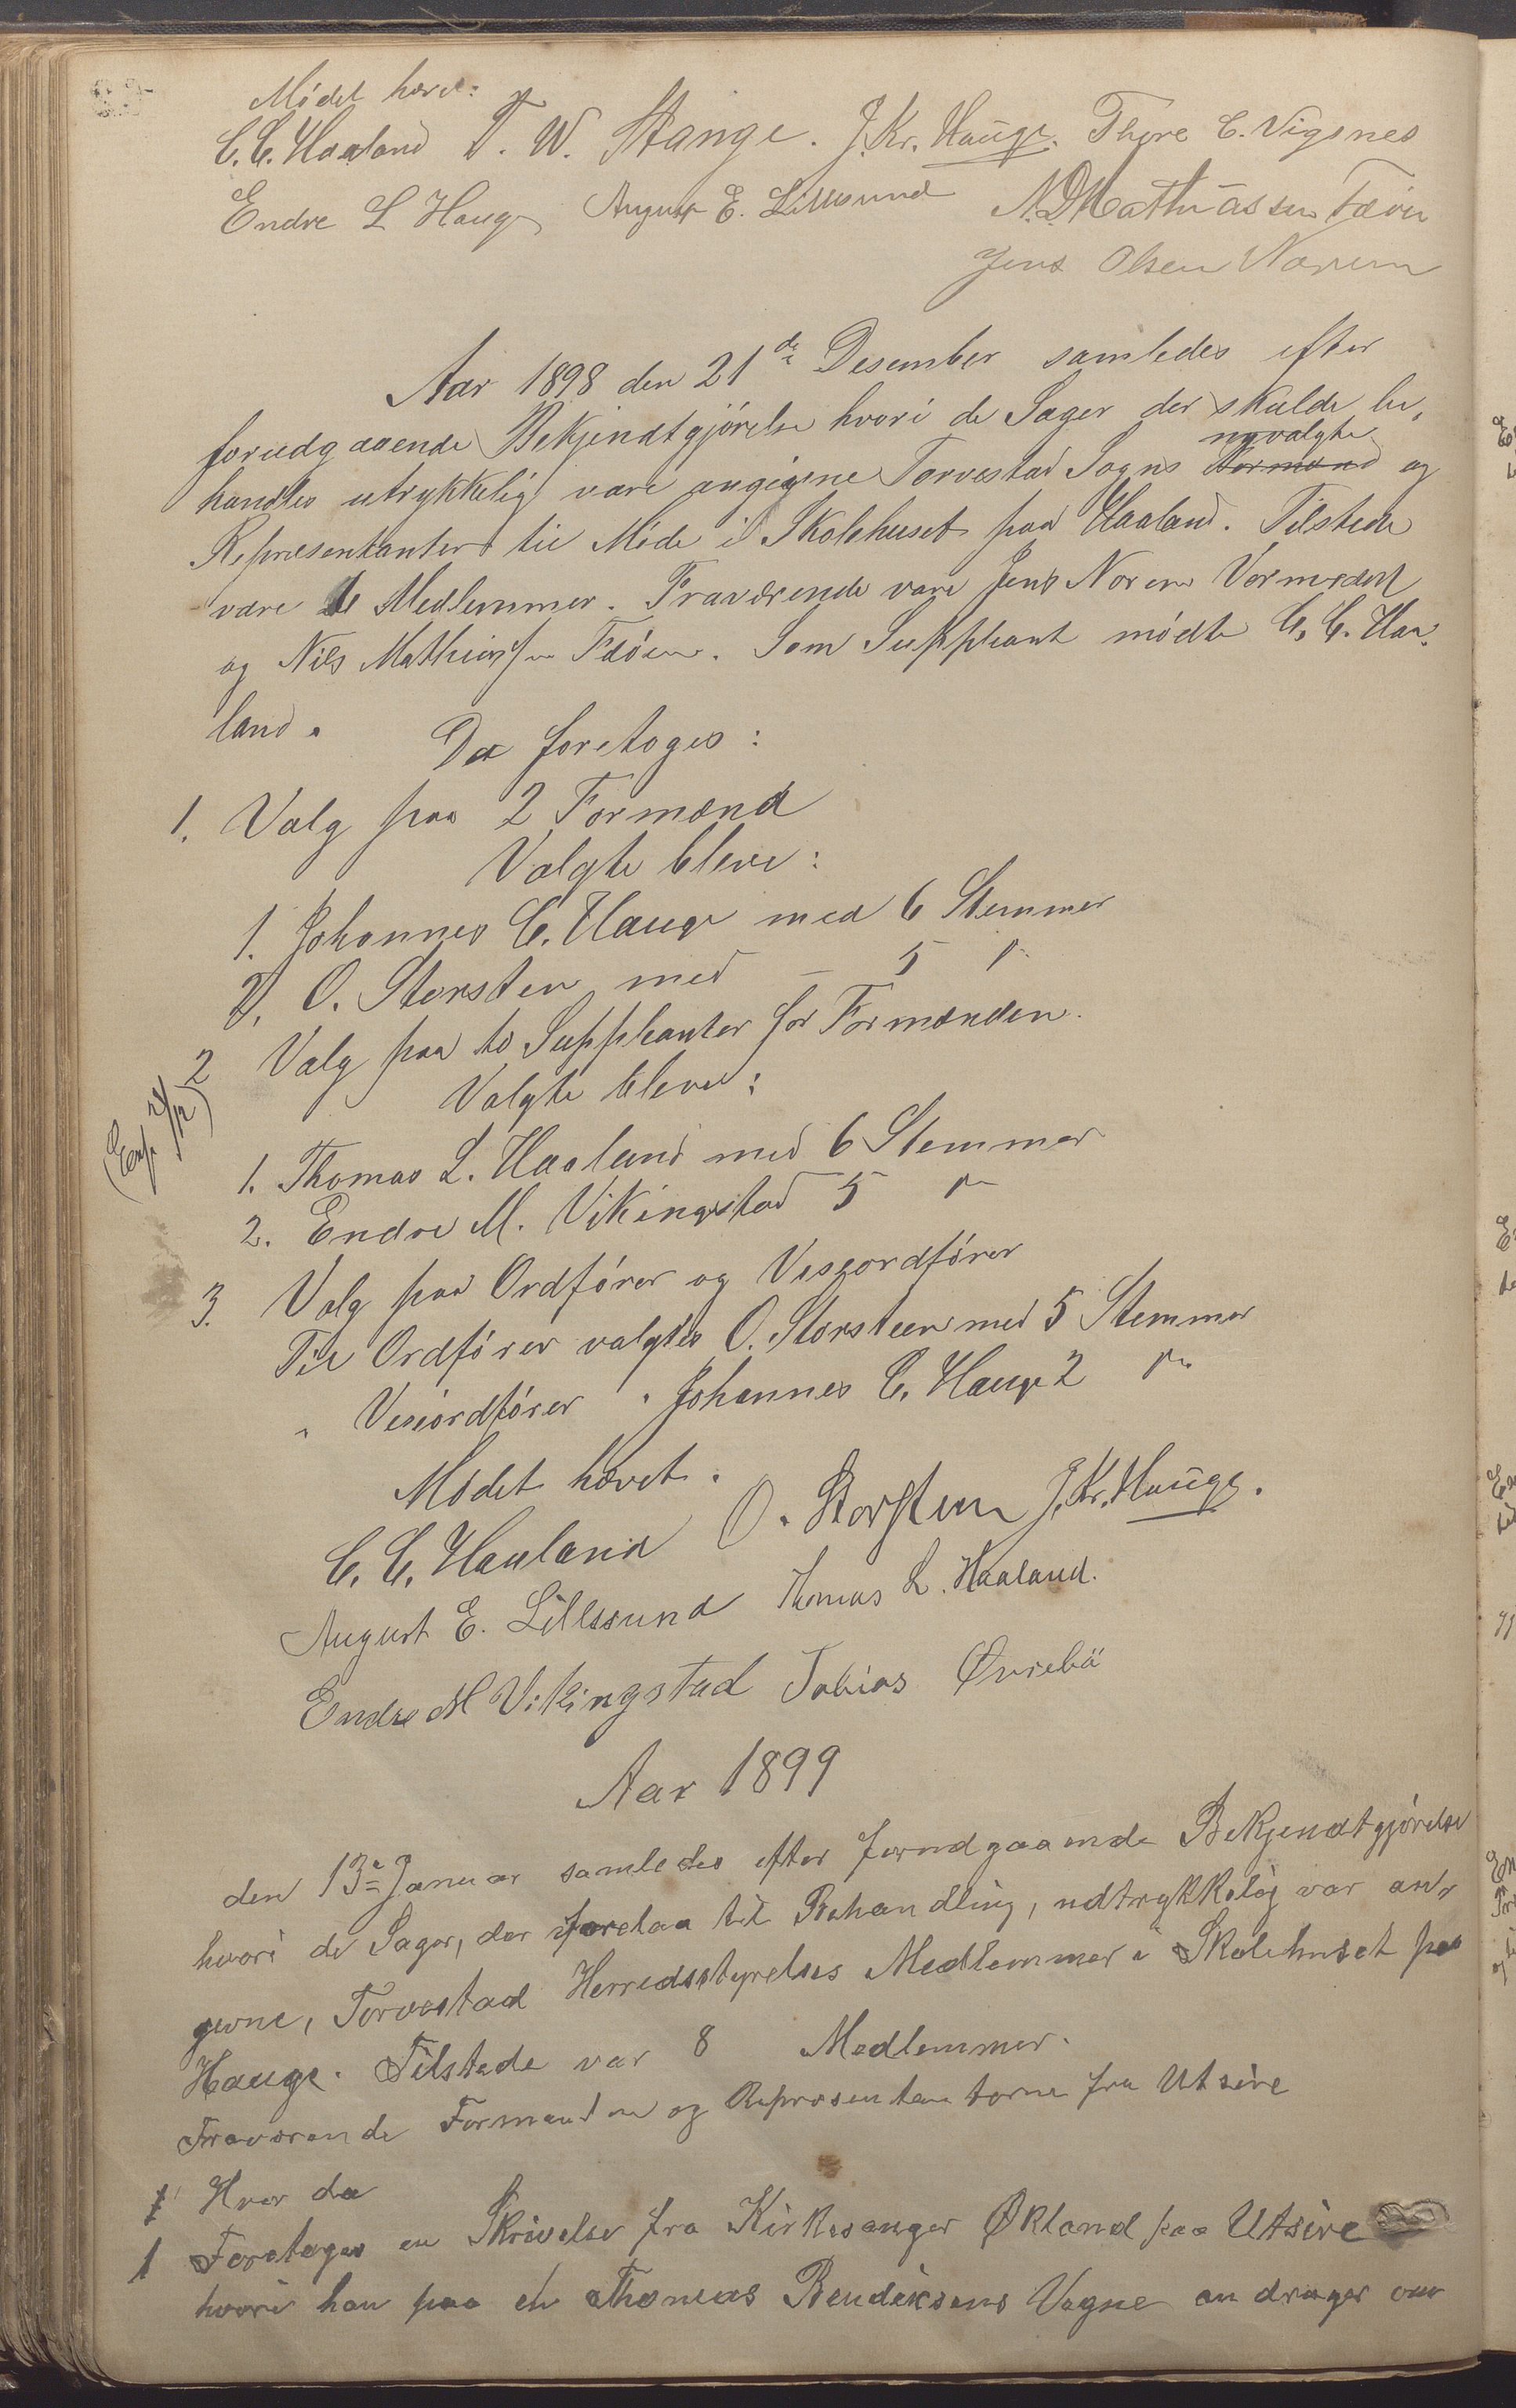 Mödet hævet:
C. C. Haaland T. W. Stange. J. Kr. Hauge. Thore C. Vigsnes
Endre L Hauge August E. Lillesund N. D Mathiassen Fæøen
Jens Olsen Norem
Aar 1898 den 21de Desember samledes efter
forudgaaende Bekjendtgjörelse hvori de Sager der skulde be-
handles utrykkelig vare angivne Torvestad Sogns nyvalgte og
Repræsentanter til Möde i Skolehuset paa Haaland. Tilstede
vare Medlemmer. Fraværende vare Jens Norem Vormedal
og Nils Mathiassen Fæöen. Som Suppleant mödte C. C. Haa-
land.
Da foretoges:
1. Valg paa 2 Formænd
Valgte bleve:
1. Johannes C. Hauge med 6 Stemmer
2. O. Storsten med – 5 "
2 Valg paa to Suppleanter for Formænden.
Valgte bleve:
(Exp 24/12)
1. Thomas L. Haaland med 6 Stemmer
2. Endre M. Vikingstad 5 "
3. Valg paa Ordförer og Viseordförer
Til Ordförer valgtes O. Storsteen med 5 Stemmer
" Viseordförer " Johannes C. Hauge 2 "
Mödet hævet.
C. C. Haaland O. Storsteen J. Kr. Hauge.
August E. Lillesund Thomas L. Haaland.
Endre M Vikingstad Tobias Øvrebö
Aar 1899
den 13de Januar samledes efter forudgaaende Bekjendtgjörelse
hvori de Sager, der forelaa til Behandling, udtrykkelig var an-
givne, Torvestad Herredsstyrelses Medlemmer i Skolehuset paa
Hauge. Tilstede var 8 Medlemmer.
Fraværende Formanden og Repræsentanterne fra Utsire
Hvor da
1 Foretoges en Skrivelse fra Kirkesanger Økland paa Utsire
hvori han paa en Thomas Bendiksens Vegne andrager om